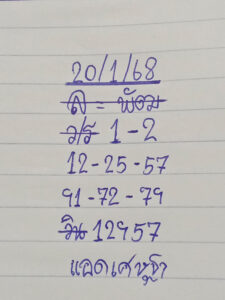 20/1/68
ล = พัดม
ว/ร 1-2
12-25-57
91-72-79
วิน 12957
แอดเศรษฐา